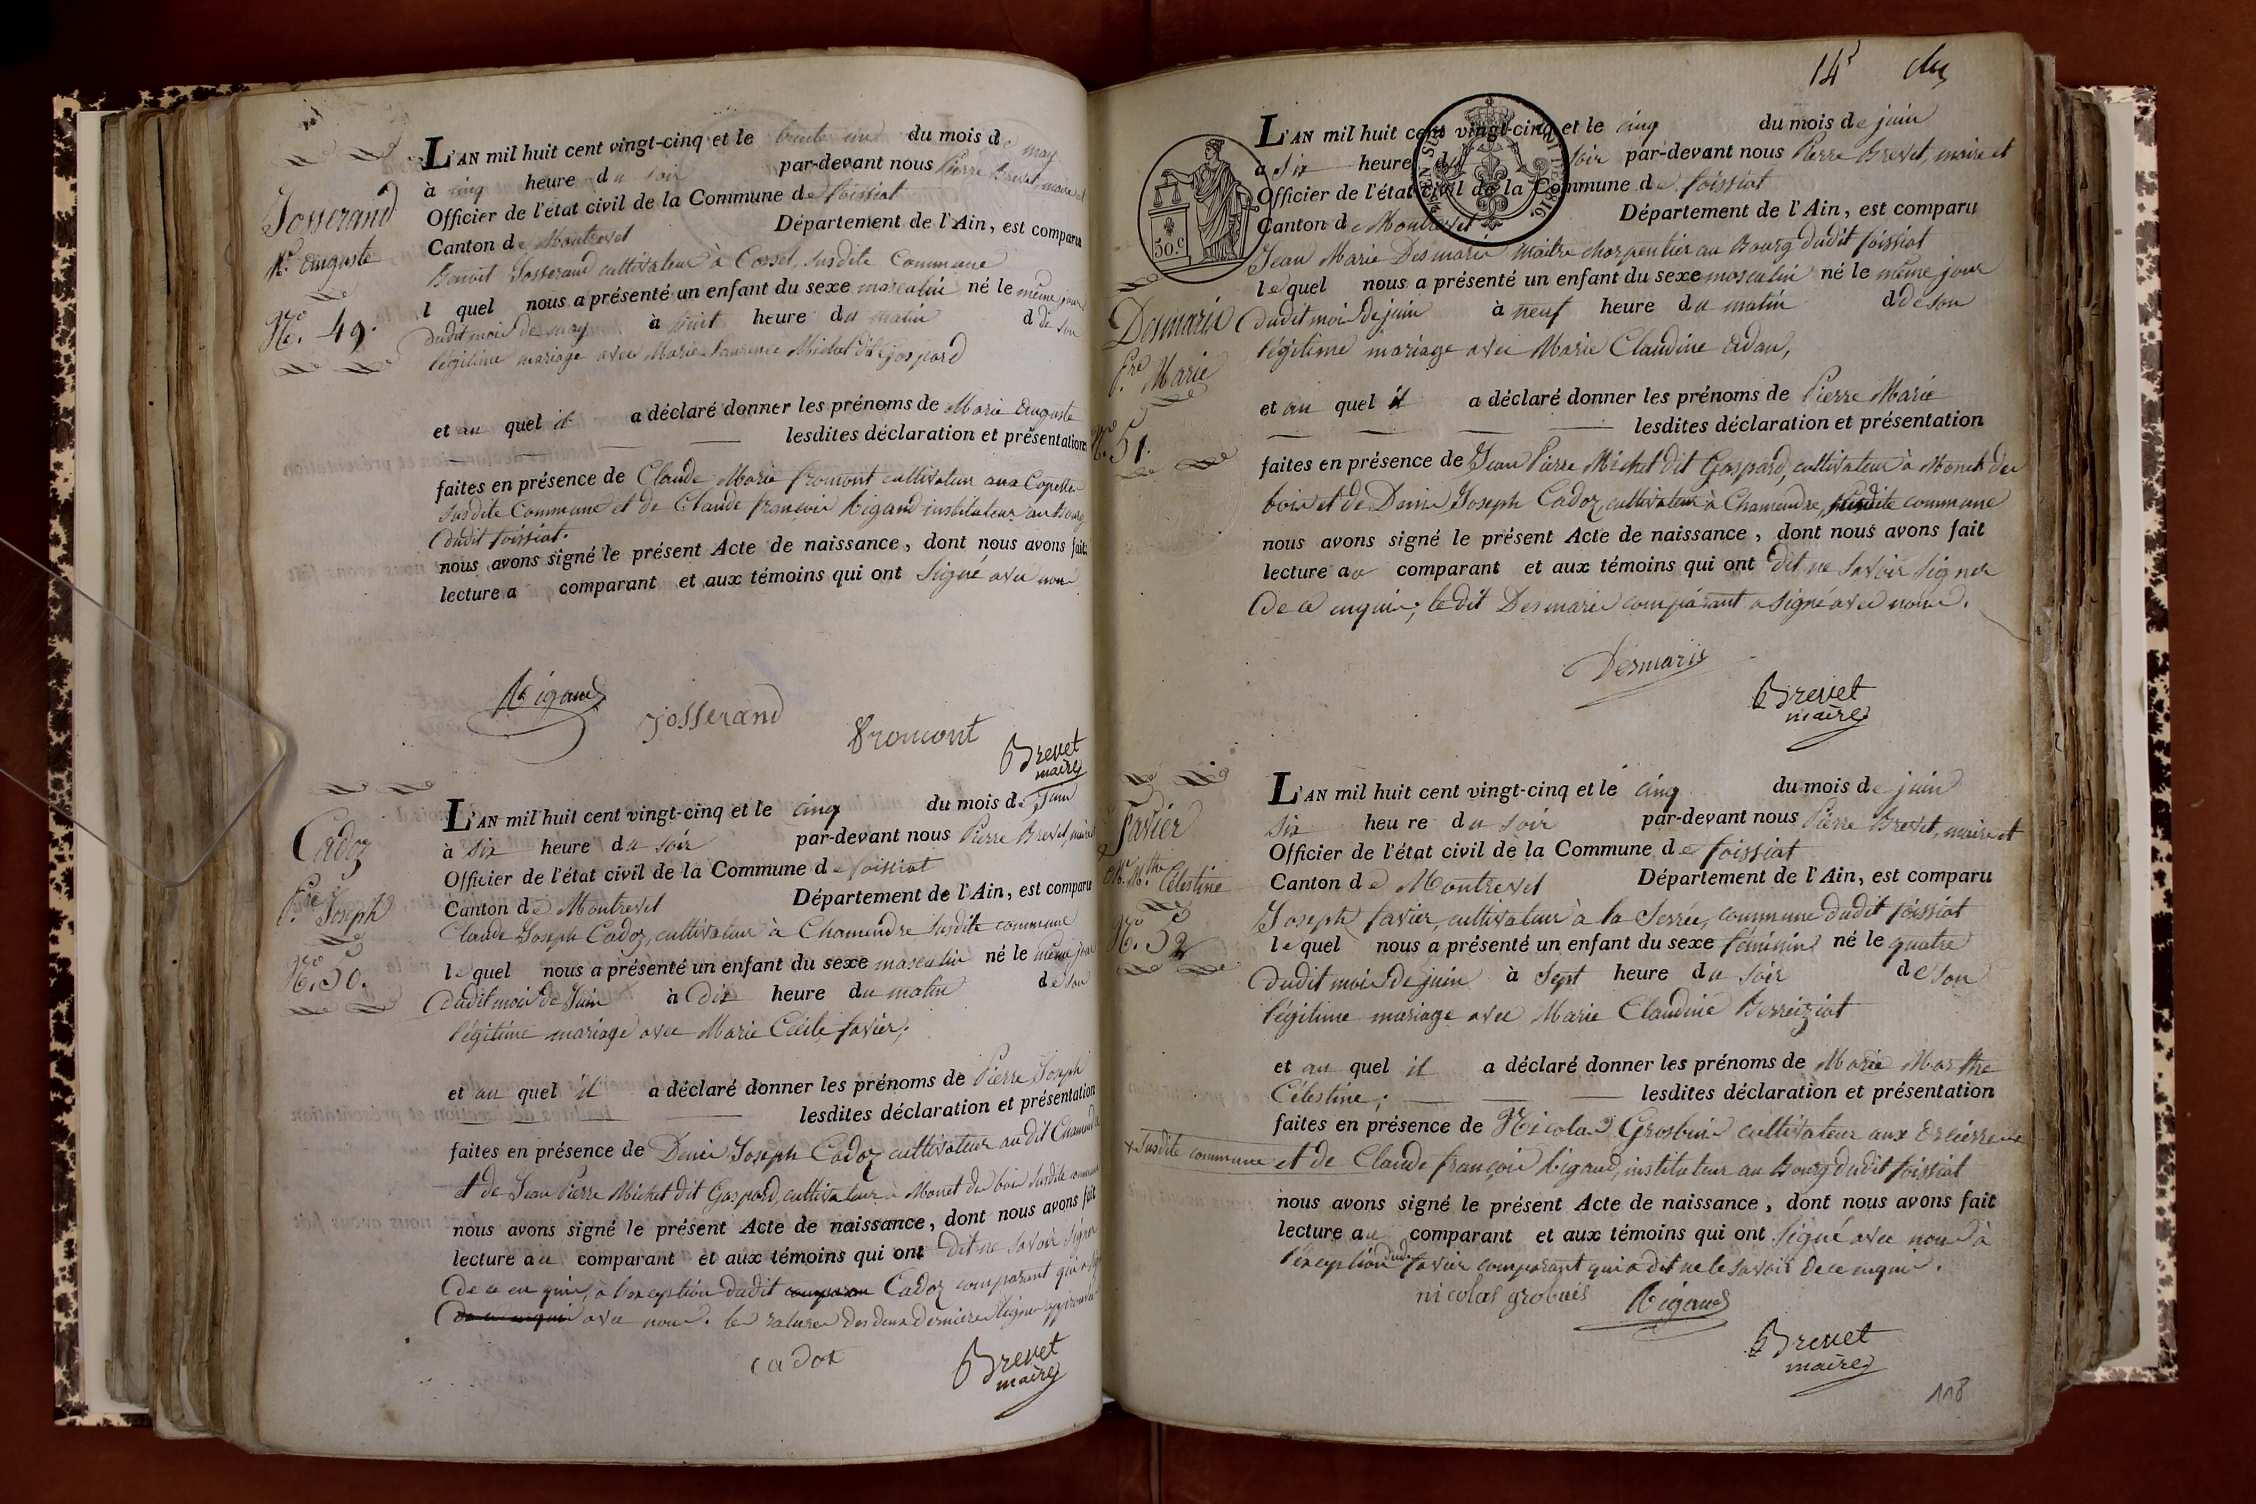 Josserand
M.ie auguste
N.ro 49.
L'AN mil huit cent vingt-cinq et le trente un du mois de may
à cinq heure du soir par-devant nous Pierre Brevet, maire et
Officier de l'état civil de la Commune de foissiat
Canton de Montrevel Département de l'Ain, est comparu
Benoit Josserand cultivateur à Corsel, susdite Commune
l quel nous a présenté un enfant du sexe masculin né le même jour
dudit mois de may à huit heure du matin d de son
légitime mariage avec Marie Laurence Michel dit Gaspard
et au quel il a déclaré donner les prénoms de Marie Auguste
lesdites déclaration et présentation
faites en présence de Claude Marie fromont cultivateur aux Capettes
susdite Commune et de Claude françois Rigaud instituteur au bourg
dudit foissiat.
nous avons signé le présent Acte de naissance, dont nous avons fait
lecture a comparant et aux témoins qui ont signé avec nous
Rigaud
josserand
fromont
Brevet
maire
Cadoz
P.re Joseph
N.ro 50.
L'AN mil huit cent vingt-cinq et le cinq du mois de Juin
à six heure du soir par-devant nous Pierre Brevet, maire et
Officier de l'état civil de la Commune de foissiat
Canton de Montrevel Département de l'Ain, est comparu
Claude Joseph Cadoz, cultivateur à Chamendre susdite commune
le quel nous a présenté un enfant du sexe masculin né le même jour
dudit mois de Juin à dix heure du matin de son
légitime mariage avec Marie Cécile favier,
et au quel il a déclaré donner les prénoms de Pierre Joseph
lesdites déclaration et présentation
faites en présence de Denis Joseph Cadoz cultivateur audit Chamendre
et de Jean Pierre Michel dit Gaspard, cultivateur à Monet du bois susdite commune
nous avons signé le présent Acte de naissance, dont nous avons fait
lecture au comparant et aux témoins qui ont dit ne savoir signer
de ce enquis, à l'exception dudit comparan Cadoz comparant qui a signé
de ce enquis avec nous. les ratures des deux dernières lignes approuvées
cadox
Brevet
maire
14
30.c
1816
Desmaris
P.re Marie
N.ro 51.
L'AN mil huit cent vingt-cinq et le cinq du mois de juin
à six heure du soir par-devant nous Pierre Brevet, maire et
Officier de l'état civil de la Commune de foissiat
Canton de Montrevel Département de l'Ain, est comparu
Jean Marie Desmaris maitre charpentier au Bourg dudit foissiat
le quel nous a présenté un enfant du sexe masculin né le même jour
dudit mois de juin à neuf heure du matin d de son
légitime mariage avec Marie Claudine adam,
et au quel il a déclaré donner les prénoms de Pierre Marie
lesdites déclaration et présentation
faites en présence de Jean Pierre Michel dit Gaspard, cultivateur à Monet du
bois et de Denis Joseph Cadoz, cultivateur à Chamendre, susdite commune
nous avons signé le présent Acte de naissance, dont nous avons fait
lecture au comparant et aux témoins qui ont dit ne savoir signer
de ce enquis; le dit Desmaris comparant a signé avec nous.
Désmaris
Brevet
maire
favier
M.ie M.the Célestine
N.ro 52
L'AN mil huit cent vingt-cinq et le cinq du mois de juin
six heure du soir par-devant nous Pierre Brevet, maire et
Officier de l'état civil de la Commune de foissiat
Canton de Montrevel Département de l'Ain, est comparu
Joseph favier, cultivateur à la Serrée, commune dudit foissiat
le quel nous a présenté un enfant du sexe féminin né le quatre
dudit mois de juin à sept heure du soir de son
légitime mariage avec Marie Claudine Berreiziat
et au quel il a déclaré donner les prénoms de Marie Marthe
Célestine; lesdites déclaration et présentation
faites en présence de Nicolas Grosbuis cultivateur aux
+ susdite commune et de Claude françois Rigaud, instituteur au Bourg dudit foissiat
nous avons signé le présent Acte de naissance, dont nous avons fait
lecture au comparant et aux témoins qui ont signé avec nous à
l'exception dudit favier comparant qui a dit ne le savoir de ce enquis.
nicolas grobuis
Rigaud
Brevet
maire
118